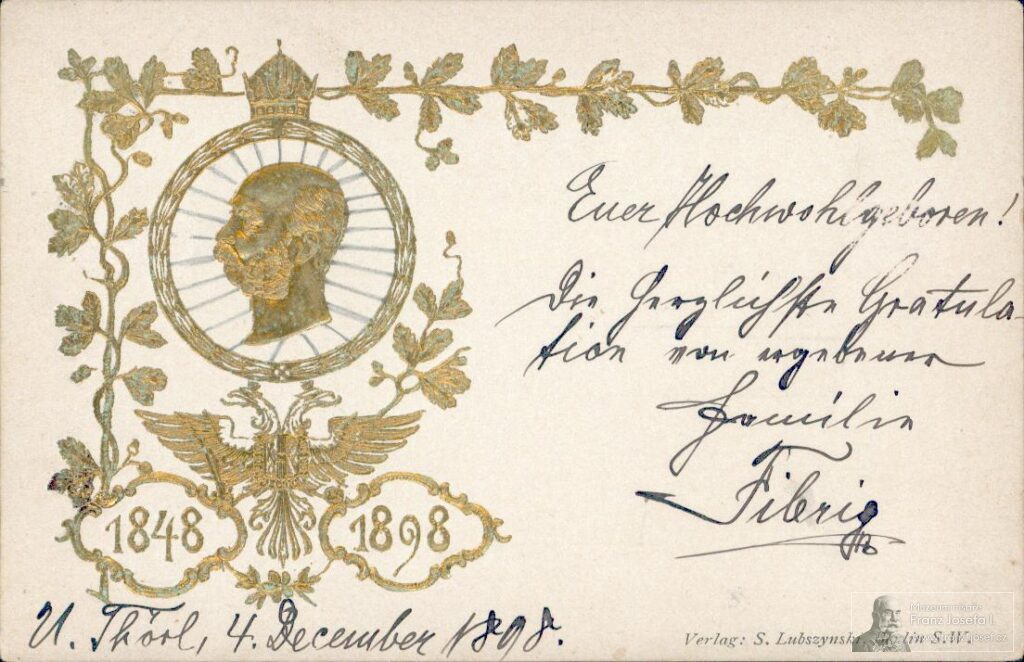 Euer Hochwohlgeboren!
Die herzlichste Gratula-
tion von ergebener
Familie
Fibrig
1848
1898
U. Thörl, 4. December 1898.
Verlag: S. Lubszynski, Berlin S.W.
Muzeum mistře
Franz Josefa I.